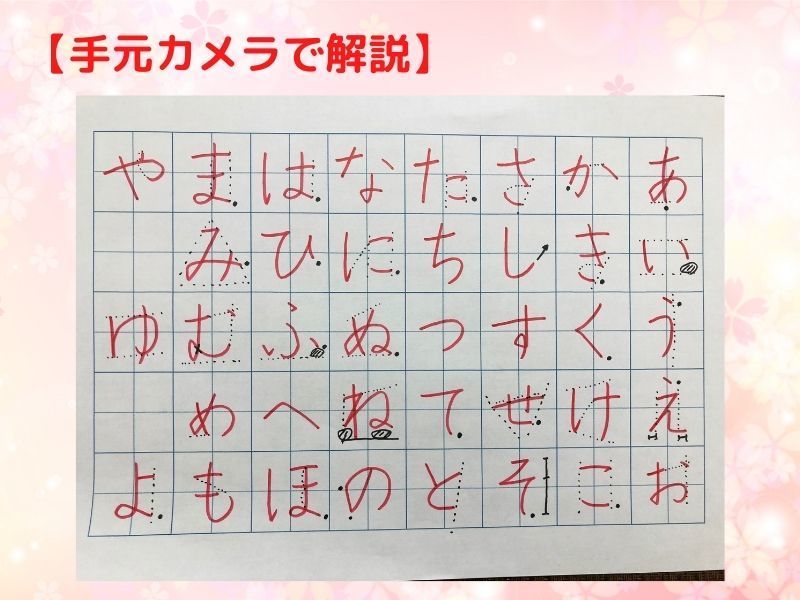 【手元カメラで解説】
あいうえお
かきくけこ
さしすせそ
たちつてと
なにぬねの
はひふへほ
まみむめも
やゆよ